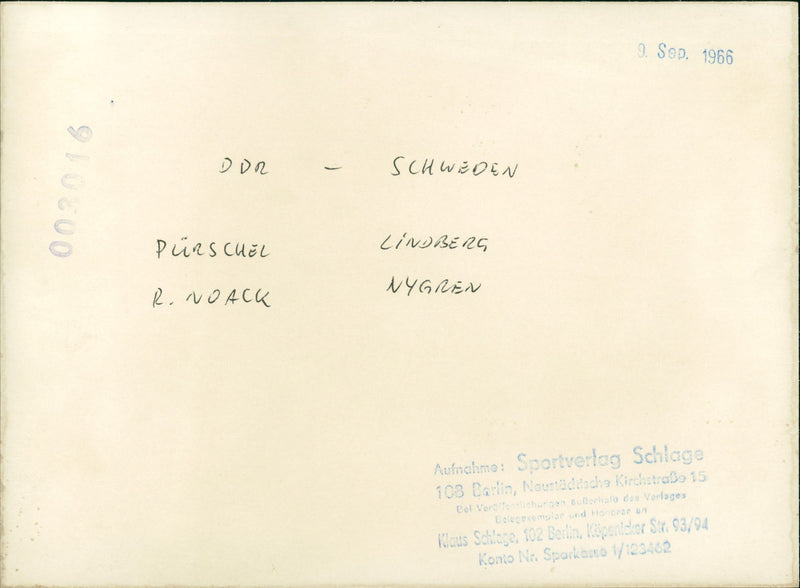 9. Sep. 1966
003016
DDR – SCHWEDEN
PÜRSCHEL LINDBERG
R. NOACK NYGREN
Aufnahme: Sportverlag Schlage
108 Berlin, Neustädtische Kirchstraße 15
Bei Veröffentlichungen außerhalb des Verlages
Belegexemplar und Honorar an
Klaus Schlage, 102 Berlin, Köpenicker Str. 93/94
Konto Nr. Sparkasse 1/123462